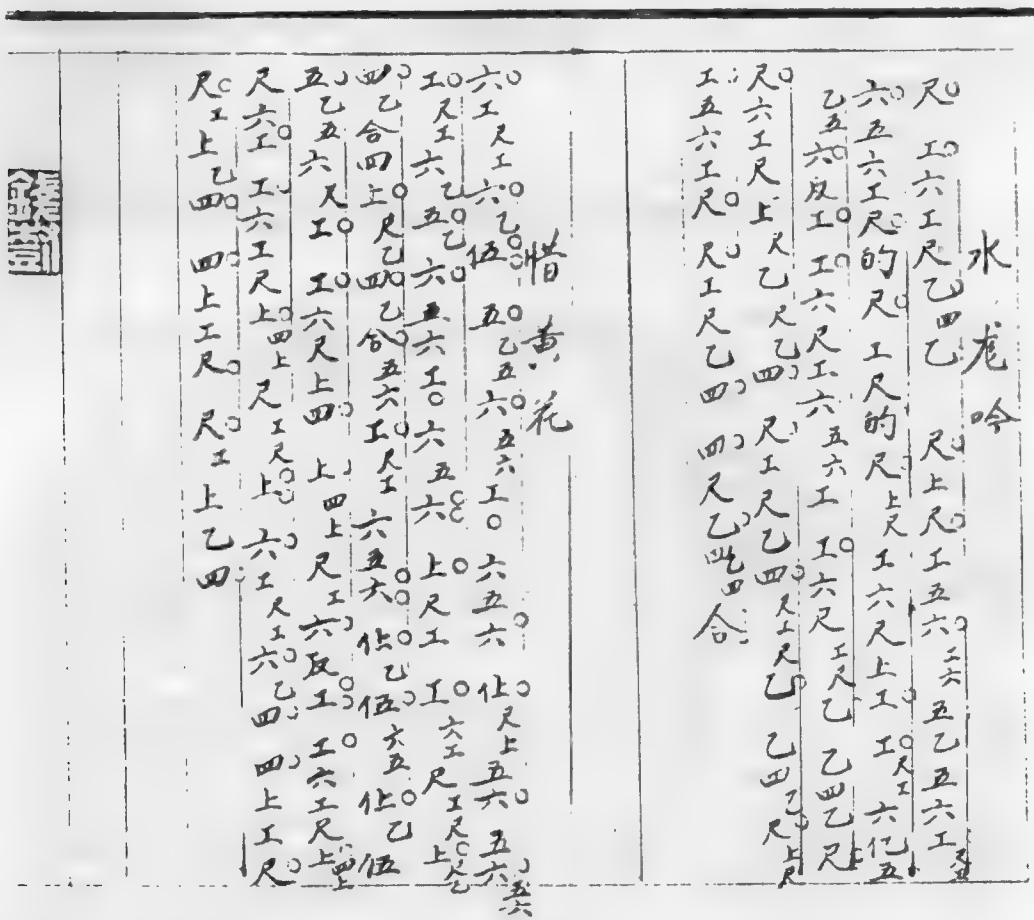 水龙吟
尺 工六工尺乙四乙 尺上尺工五六工六五乙五六工
六五六工尺的尺工尺的尺上尺工六尺上工工尺工六亿五
乙五六反工工六尺工六五六工工六尺工尺乙乙四乙尺
尺六工尺上尺乙尺乙四尺工尺乙四尺工尺乙乙四乙尺上尺
工五六工尺尺工尺乙四四尺乙四乙四合
惜黄花
六工尺工六乙伍五乙五六五六工六五六仩尺上五六五六五六
工尺工六乙五乙六五六工六五六上尺工工六工尺工尺上尺乙
四乙合四上尺乙四乙合五六工尺工六五六仩乙伍六五仩乙伍
五乙五六尺工工六尺上四上四上尺工六反工工六工尺上四上
尺六工工六工尺上四上尺工尺上六工尺工六乙四四上工尺
尺工上乙四四上工尺尺工上乙四